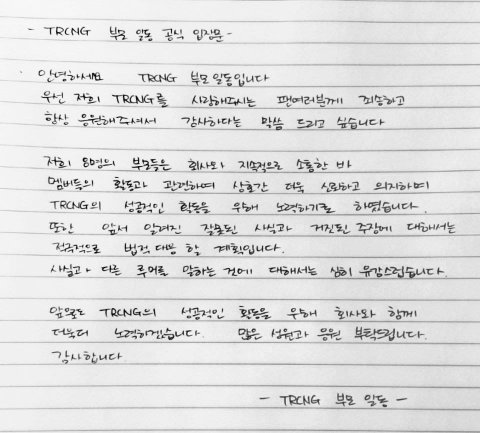 - TRCNG 부모 일동 공식 입장문 -
안녕하세요 TRCNG 부모 일동입니다
우선 저희 TRCNG를 사랑해주시는 팬여러분께 죄송하고
항상 응원해주셔서 감사하다는 말씀 드리고 싶습니다
저희 8명의 부모들은 회사와 지속적으로 소통한 바
멤버들의 활동과 관련하여 상호간 더욱 신뢰하고 의지하며
TRCNG의 성공적인 활동을 위해 노력하기로 하였습니다.
또한 앞서 알려진 잘못된 사실과 거짓된 주장에 대해서는
적극적으로 법적 대응 할 계획입니다.
사실과 다른 루머를 말하는 것에 대해서는 심히 유감스럽습니다.
앞으로 TRCNG의 성공적인 활동을 위해 회사와 함께
더욱더 노력하겠습니다. 많은 성원과 응원 부탁드립니다.
감사합니다
- TRCNG 부모 일동 -